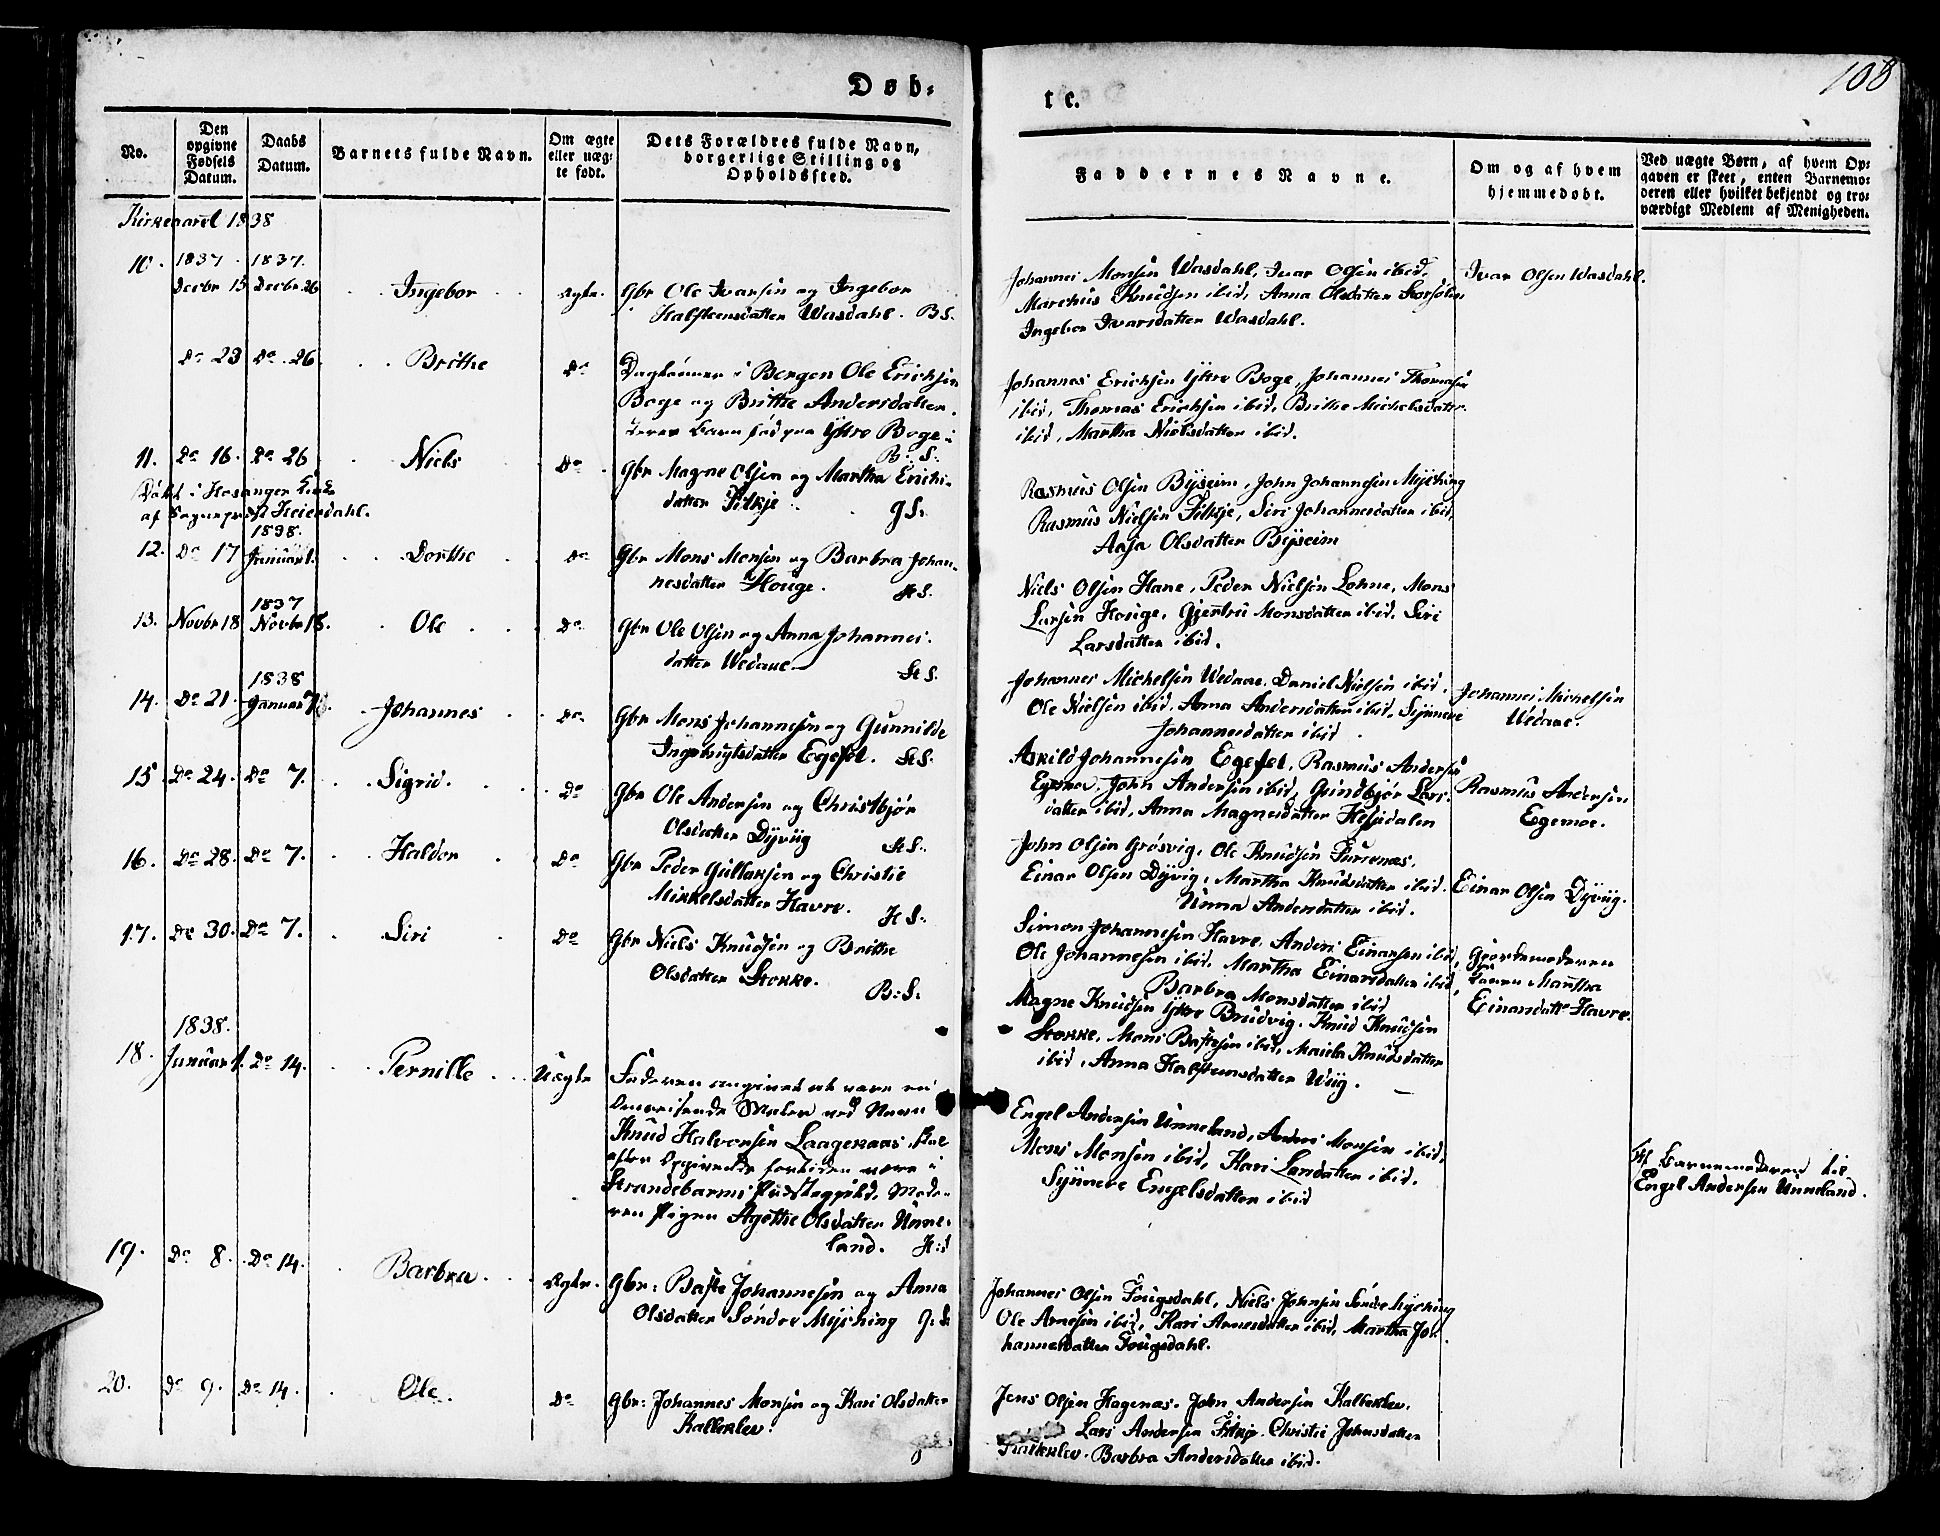 Døb-
te.
108
No.
Den
opgivne
Fødsels
Datum.
Daabs
Datum.
Barnets fulde Navn.
Om ægte
eller uæg-
te født.
Dets Forældres fulde Navn,
borgerlige Stilling og
Opholdssted.
Faddernes Navne.
Om og af hvem
hjemmedøbt.
Ved uægte Børn, af hvem Op-
gaven er skeet, enten Barnemo-
deren eller hvilket bekjendt og tro-
værdigt Medlem af Menigheden.
Kirkeaaret 1838
10. 1837 Decbr 15 1837. Decbr 26 Ingebor Ægte. Gbr Ole Ivarsen og Ingebor
Halfsteensdatter Wasdahl. B S.
Johannes Monsen Wasdahl, Ivar Olsen ibid.
Marchus Knudsen ibid, Anna Olsdatter
Ingebor Ivarsdatter Wasdahl.
Ivar Olsen Wasdahl.
Do 23 Do 26 Brithe Do i Bergen Ole Erichsen
Boge og Brithe Andersdatter.
Ytre Boge i
B. S.
Johannes Erichsen Ytre Boge, Johannes Thomasen
ibid, Thomas Erichsen ibid, Brithe Michelsdatter
ibid, Martha Nielsdatter ibid.
11. Do 16. Do 26 Niels Do Gbr Magne Olsen og Martha Erichs-
datter Fitkje G S.
Døbt i Hosanger Kirke
af Sognepræst Heierdahl.
Rasmus Olsen Byseim, John Johannesen Myching
Rasmus Nielsen Fitkje, Siri Johannesdatter ibid,
Aasa Olsdatter Byseim
12. Do 17 1838. Januar 1. Dorthe Do Gbr Mons Monsen og Barbra Johan-
nesdatter Houge. H S.
Niels Olsen Hane, Peder Nielsen Lohne, Mons
Larsen Houge, Gjertru Monsdatter ibid. Siri
Larsdatter ibid.
13. Novbr 18 1837 Novbr 18. Ole Do Gbr Ole Olsen og Anna Johannes-
datter Wedaae H S.
Johannes Michelsen Wedaae. Daniel Nielsen ibid.
Ole Nielsen ibid. Anna Andersdatter ibid. Synneve
Johannesdatter ibid.
Johannes Michelsen
Wedaae.
14. Do 21. 1838 Januar 7 Johannes Do Gbr Mons Johannesen og Gunnilde
Ingebrigtsdatter Egeset. H S.
Askild Johannesen Egeset, Rasmus Andersen
Egemoe, John Andersen ibid, Gundbjør Lars-
datter ibid, Anna Magnesdatter Hesjedalen
Rasmus Andersen
Egemoe.
15 Do 24. Do 7. Sigrid. Do Gbr Ole Andersen og Christbjør
Olsdatter Dyviig H S.
John Olsen Grøsvig. Ole Knudsen Furrenæs.
Einar Olsen Dyvig, Martha Knudsdatter ibid.
Unna Andersdatter ibid.
Einar Olsen Dyviig.
16. Do 28. Do 7. Haldor Do Gbr Peder Gullaksen og Christie
Mikkelsdatter Havre. H S.
Simon Johannesen Havre, Anders Einarsen ibid,
Ole Johannesen ibid. Martha Einarsdatter ibid,
Barbra Monsdatter ibid
Gjordemoderen
Martha
Einarsdatter Havre.
17. De 30. Do 7. Siri Do Gbr Niels Knudsen og Brithe
Olsdatter Stokke. B. S.
Magne Knudsen Ytre Brudvig. Knud Knudsen
Stokke, Mons Bastesen ibid, Marita Knudsdatter
ibid, Anna Halfsteensdatter Wiig.
18. 1838. Januar 1. Do 14. Pernille Uægte Faderen angivet at være en
omreisende Maler ved Navn
Knud Halvorsen Laagenaas, skal
efter Opgivende fortiden være i
Strandebarms Præstegjeld. Mode-
ren Pigen Agethe Olsdatter Unne-
land. H S
Engel Andersen Unneland, Anders Monsen ibid,
Mons Monsen ibid, Kari Larsdatter ibid.
Synneve Engelsdatter ibid
Af Barnemoderen til
Engel Andersen Unneland.
19. Do 8. Do 14. Barbra Ægte. Gbr: Baste Johannesen og Anna
Olsdatter Søndre Myching G. S.
Johannes Olsen Fougsdahl, Niels Johnsen Søndre Myching
Ole Arnesen ibid, Kari Arnesdatter ibid, Martha Jo-
hannesdatter Fougsdahl.
20. Do 9. Do 14. Ole. Do Gbr: Johannes Monsen og Kari Olsdatter
Kalleklev.
Jens Olsen Hagenæs. John Andersen Kalleklev.
Lars Andersen Fitkje. Christie Johnsdatter
Kalleklev. Barbra Andersdatter ibid.